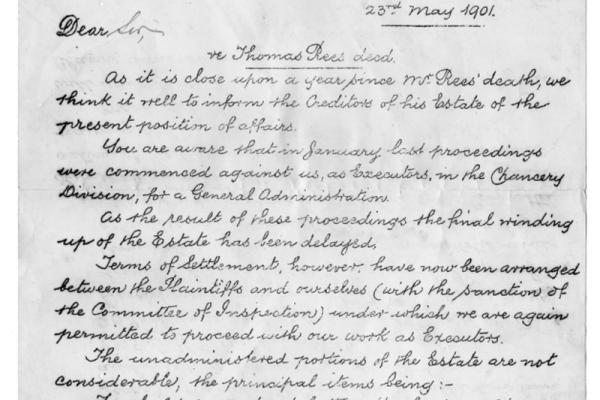 23rd May 1901.
Dear Sir,
re Thomas Rees decd.
As it is close upon a year since Mr. Rees' death, we
think it well to inform the Creditors of his Estate of the
present position of affairs.
You are aware that in January last proceedings
were commenced against us, as Executors, in the Chancery
Division, for a General Administration.
As the result of these proceedings the final winding
up of the Estate has been delayed,
Terms of Settlement, however, have now been arranged
between the Plaintiffs and ourselves (with the sanction of
the Committee of Inspection) under which we are again
permitted to proceed with our work as Executors.
The unadministered portions of the Estate are not
considerable, the principal items being:-